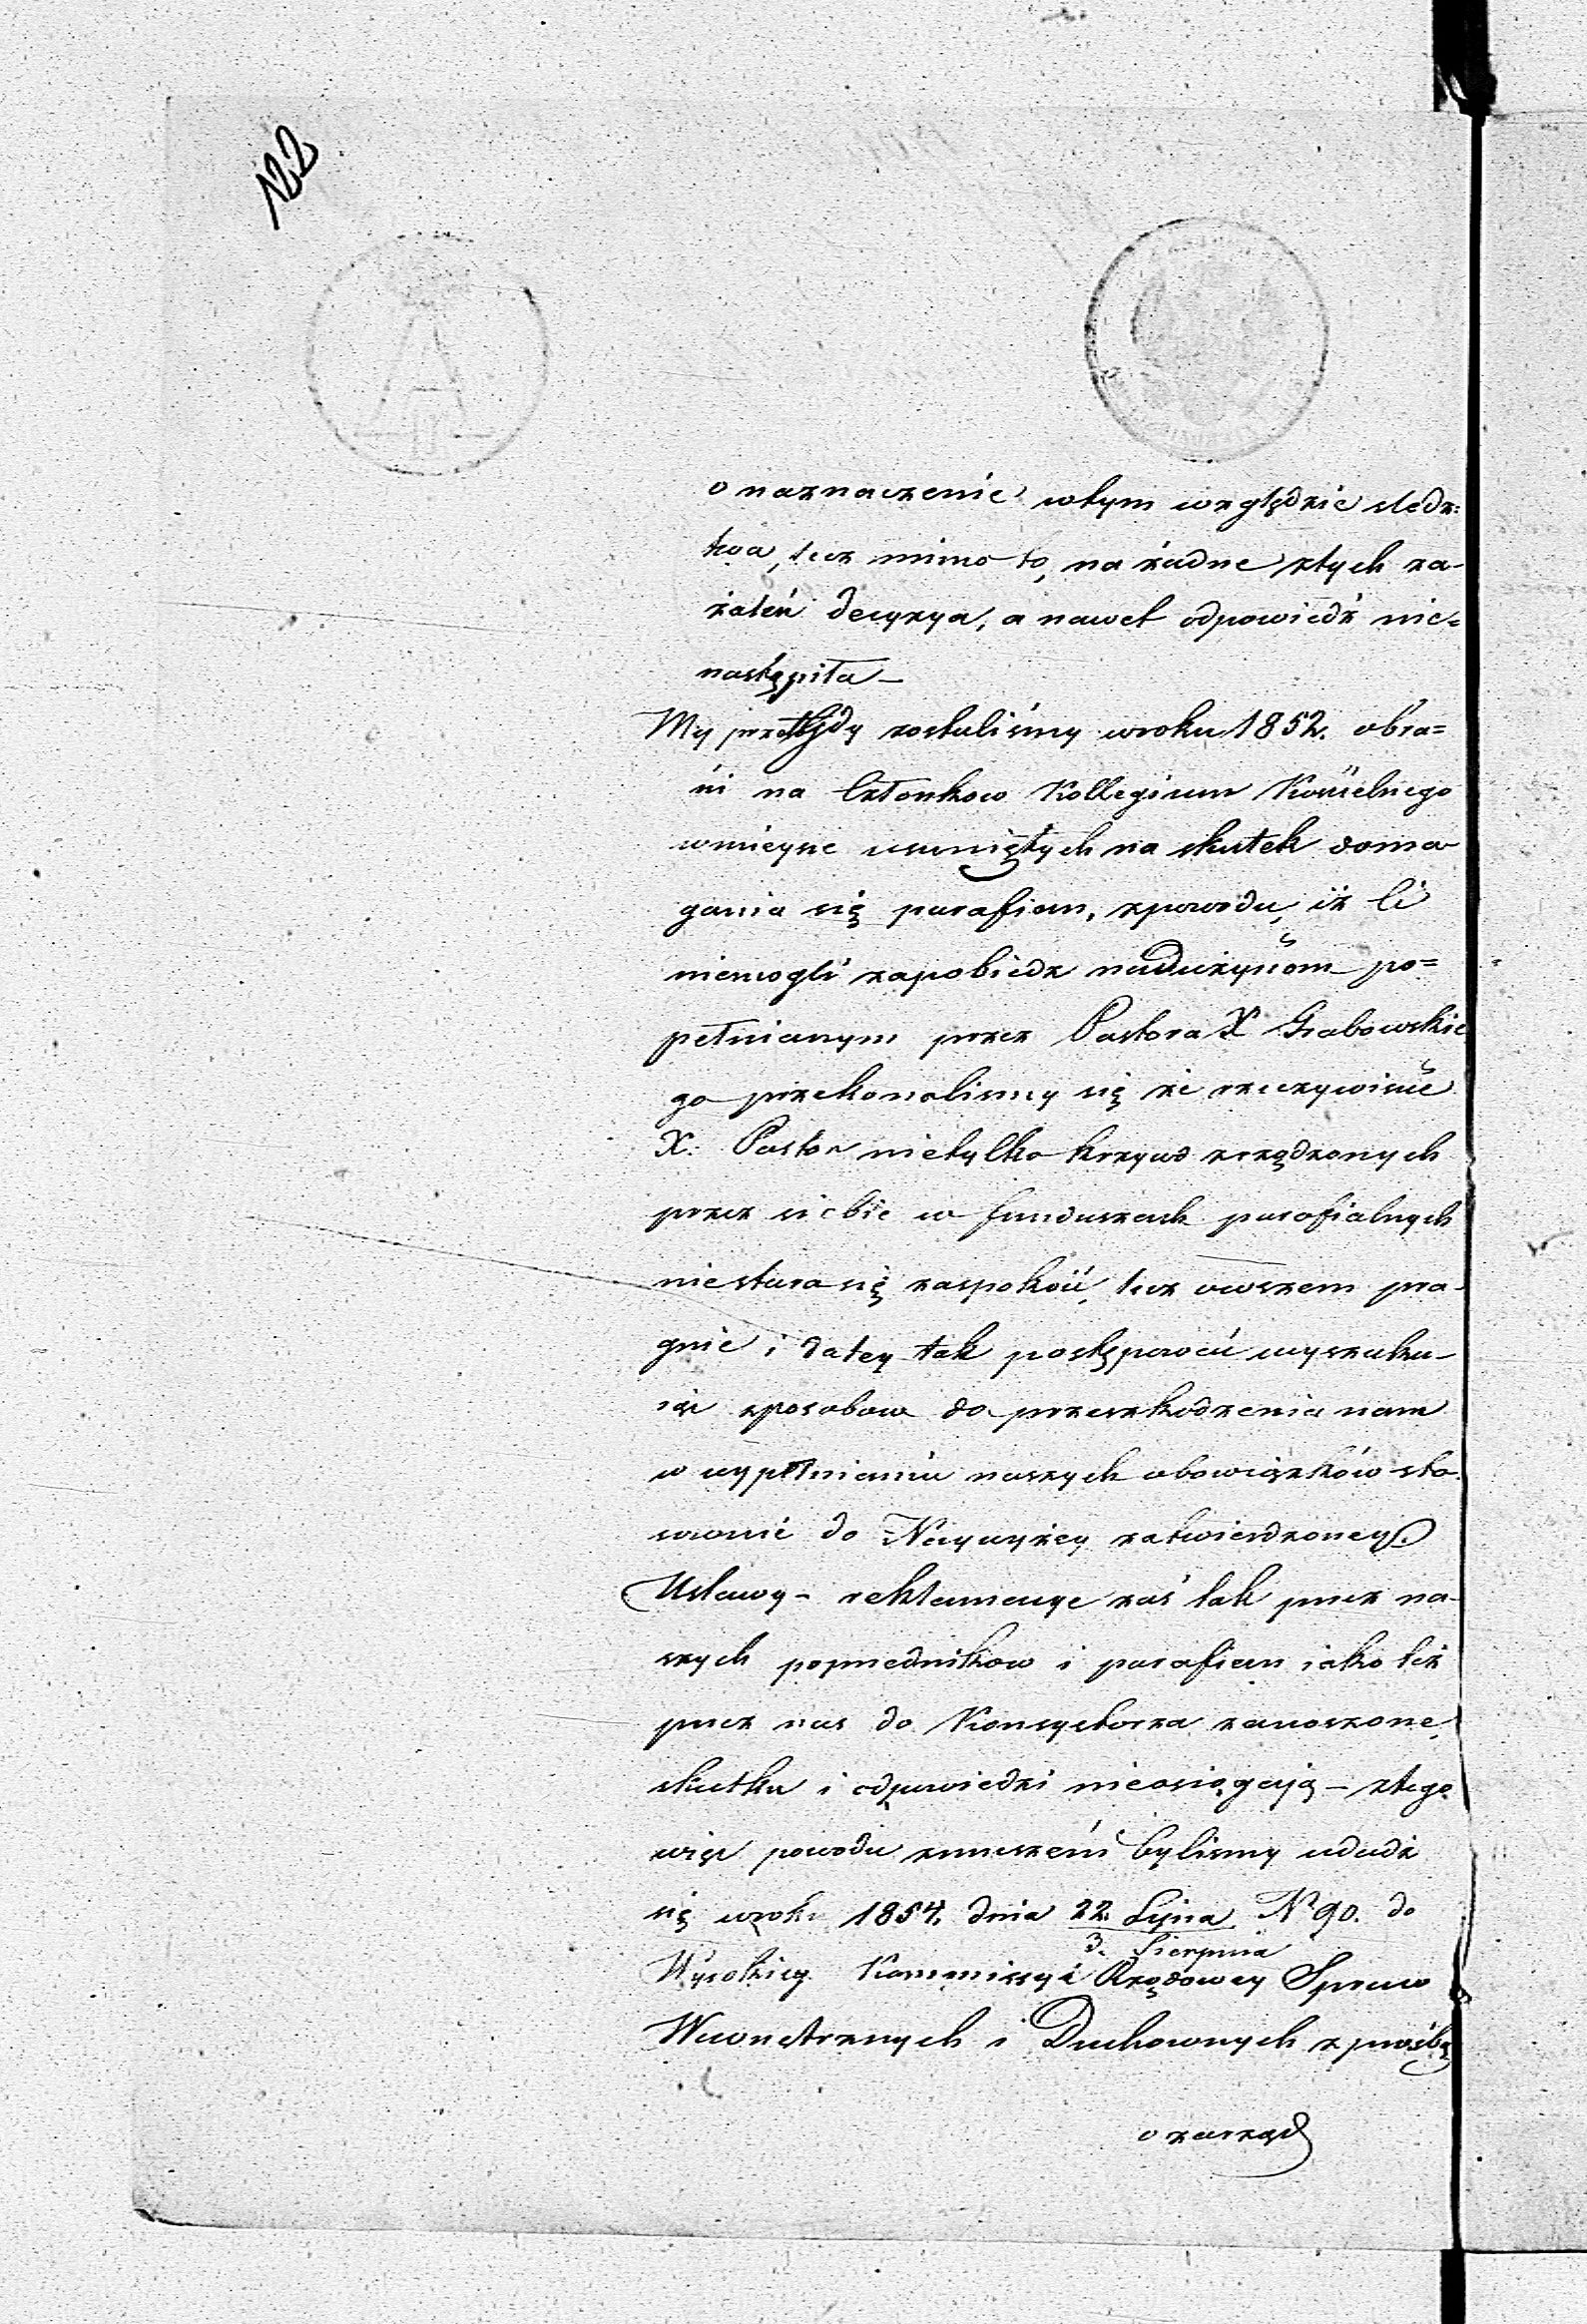 122
o naznaczenie wtym względzie sledz=
twa, lecz mimo to, na żadne ztych za-
żaleń decyzya, a nawet odpowiedź nie=
nastąpiła –
My przeto gdy zostaliśmy wroku 1852. obra=
ni na Członkow Kollegium Kościelnego
wmieysce usuniętych na skutek doma
gania się parafian, zpowodu, iż Ci
niemogli zapobiedz nadużyciom po=
pełnianym przez Pastora X Grabowskie
go przekonalismy się że rzeczywiscie
X. Pastor nietylko krzywd zrządzonych
przez siebie w funduszach parafialnych
niestara się zaspokoić, lecz owszem pra-
gnie i daley tak postępować wyszuku-
iąc sposobow do przeszkodzenia nam
w wypełnianiu naszych obowiązków sto-
sownie do Naywyżey zatwierdzoney
Ustawy – reklamacye zaś tak przez na-
szych poprzednikow i parafian iako też
przez nas do Konsystorza zanoszone,
skutku i odpowiedzi nieosiągają – ztego
więc powodu zmuszeni bylismy udadź
się wroku 1854. dnia 22. Lipca N° 90. do
3. Sierpnia
Wysokiey Kommissyi Rządowey Spraw
Wewnetrznych i Duchownych z prośbą
o zarząd